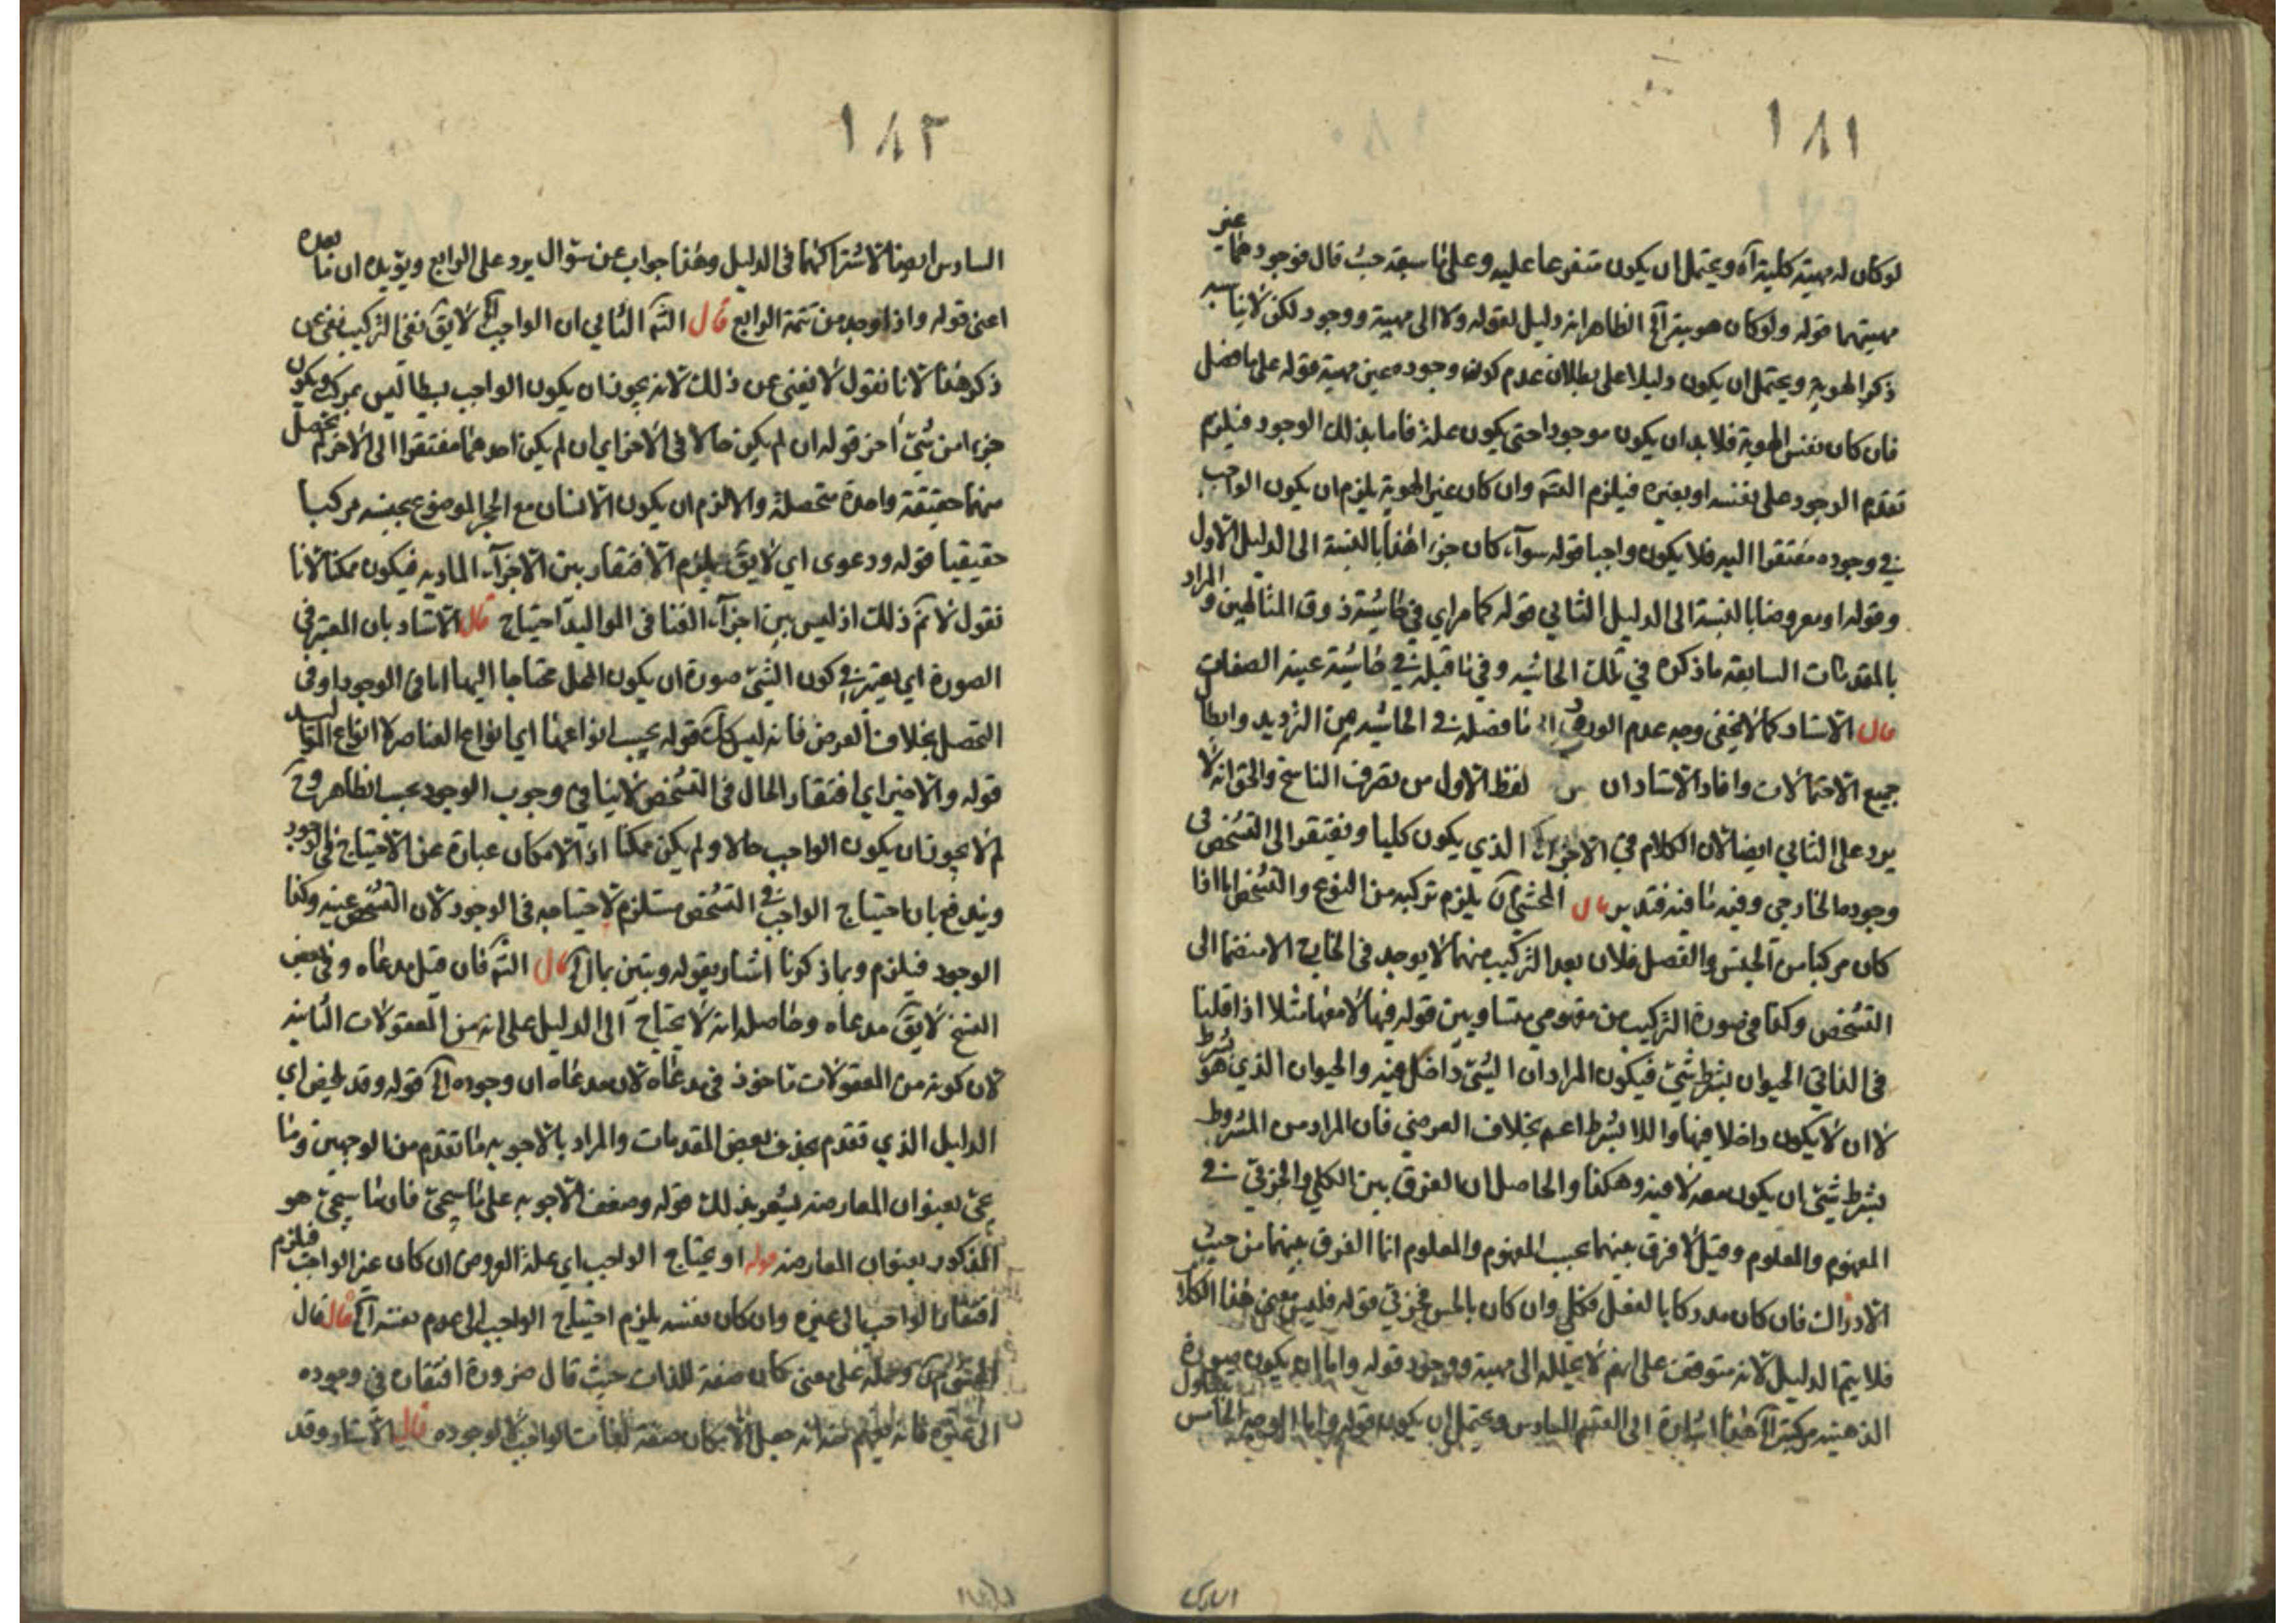 ١٨١
لو كان له مهية كلية آه ويحتمل ان يكون متفرعا عليه وعلى ما سبقه حيث قال فوجودهما عين
مهيتهما قوله ولو كان هوية آلخ الظاهر انه دليل لقوله ولا الى مهية ووجود لكن لا يناسبه
ذكر الهوية ويحتمل ان يكون دليلا على بطلان عدم كون وجوده عين مهية قوله على ما فصل
فان كان نفس الهوية فلا بد ان يكون موجودا حتى يكون علة فاما بذلك الوجود فيلزم
تقدم الوجود على نفسه او بغيره فيلزم التسم وان كان غير الهوية يلزم ان يكون الواجب
في وجوده مفتقرا اليه فلا يكون واجبا قوله سوآء كان جزء اهذا بالنسبة الى الدليل الاول
وقوله او معروضا بالنسبة الى الدليل الثاني قوله كما مر اي في حاشية ذوق المتالهين والمراد
بالمقدمات السابقه ما ذكره في تلك الحاشيه وفي ما قبله في حاشية عينية الصفات
قال الاستاد كما لا يخفى وجه عدم الورود ما فصله في الحاشيه من الترديد وابطال
جميع الاحتمالات وافاد الاستاد ان لفظ الاول من تصرف الناسخ والحق انه لا
يرد على الثاني ايضا لان الكلام في الاجزاء الذي يكون كليا ونفتقر الى التشخص في
وجوده الخارجي وفيه ما فيه فتدبر قال المحشي يلزم تركيبه من النوع والتشخص اما اذا
كان مركبا من الجنس والفصل فلان بعد التركيب منهما لا يوجد في الخارج الا منضما الى
التشخص وكذا في صورة التركيب من مفهومي متساويين قوله فيها لا معها مثلا اذا قلنا
في الذاتي الحيوان بشرط شيئ فيكون المراد ان الشيئ داخل فيه والحيوان الذي هو بشرط
لا ان لا يكون داخلا فيها واللا بشرط اعم بخلاف العرضي فان المراد من المشروط
بشرط شيئ ان يكون معه لا فيه وهكذا والحاصل ان الفرق بين الكلي والجزئي في
المفهوم والمعلوم وقيل لا فرق بينهما بحسب المفهوم والمعلوم انما الفرق بينهما من حيث
الادراك فان كان مدركا بالعقل فكلي وان كان بالحس فجزئي قوله فليس معنى هذا الكلام
فلا يتم الدليل لانه متوقف على انه لا يحلله الى مهية ووجود قوله واما ان يكون صورة
الذهنيه مركبة آلخ هذا اشارة الى القسم السادس ويحتمل ان يكون قوله واما الوجه الخامس
١٨٢
السادس ايضا لاشتراكهما في الدليل وهذا جواب عن سؤال يرد على الرابع ويؤيده ان ما بعده
اعني قوله واذ لوجد من تتمة الرابع قال التسم الثاني ان الواجب لا يق نفي التركيب نفي عن
ذكر هذا لانا نقول لا نغني عن ذلك لانه يجوز ان يكون الواجب بسيطا ليس بمركب ويكون
جزءا من شيئ آخر قوله ان لم يكن حالا في الآخر اي ان لم يكن احدهما مفتقرا الى الآخر لم يحصل
منهما حقيقة واحدة متحصلة والا لزم ان يكون الانسان مع الحجر الموضوع بجنبه مركبا
حقيقيا قوله ودعوى اي لا يق يلزم الافتقار بين الاجزآء الماديه فيكون ممكنا لانا
نقول لا نم ذلك اذ ليس بين اجزآء الغذا في المواليد احتياج قال الاستاد بان المعتبر في
الصورة اي يعتبر في كون الشيئ صورة ان يكون المحل محتاجا اليها اما في الوجود او في
التحصل بخلاف العرض فانه ليس كك قوله بحسب انواعها اي انواع العناصر لا انواع المواليد
قوله والاخير اي افتقار الحال في التشخص لا ينافي وجوب الوجود بحسب الظاهر وح
لم لا يجوز ان يكون الواجب حالا ولم يكن ممكنا اذ الامكان عبارة عن الاحتياج في الوجود
ويندفع بان احتياج الواجب في التشخص مستلزم لاحتياجه في الوجود لان التشخص عينه وكذا
الوجود فيلزم وبما ذكرنا اشار بقوله ويتبين بما آلخ قال التسم فان قيل مدعاه وفي بعض
النسخ لا يق مدعاه وحاصله انه لا يحتاج الى الدليل على انه من المعقولات الثانيه
لان كونه من المعقولات ماخوذ في مدعاه لان مدعاه ان وجوده آلخ قوله وقد يلخص اي
الدليل الذي تقدم بحذف بعض المقدمات والمراد بالاجوبه ما تقدم من الوجهين وما
يجئ بعنوان المعارضه يشعر بذلك قوله وضعف الاجوبه على ما سيجئ فان ما سيجئ هو
المذكور بعنوان المعارضه قوله او يحتاج الواجب اي علة العروض ان كان غير الواجب فيلزم
افتقار الواجب الى غيره وان كان نفسه يلزم احتياج الواجب الى عدم نفسه آلخ قال قال
المحشي وحمله على معنى كان صفة للذات حيث قال ضرورة افتقاره في وجوده
الى غيره فانه يفهم منه انه جعل الامكان صفة لذات الواجب لا لوجوده قال الاستاد وقد